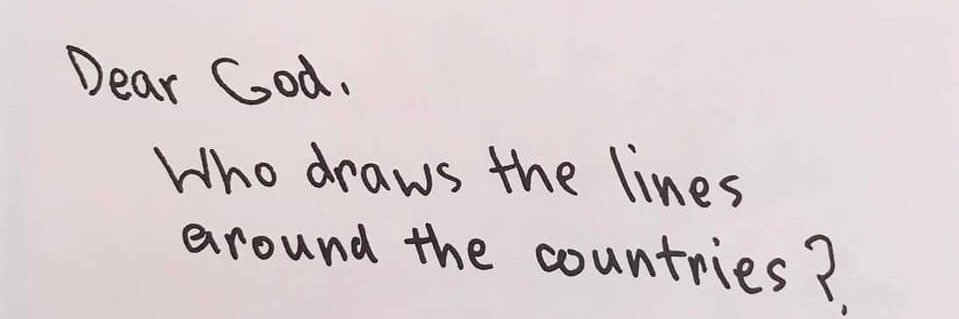 Dear God.
Who draws the lines
around the countries?